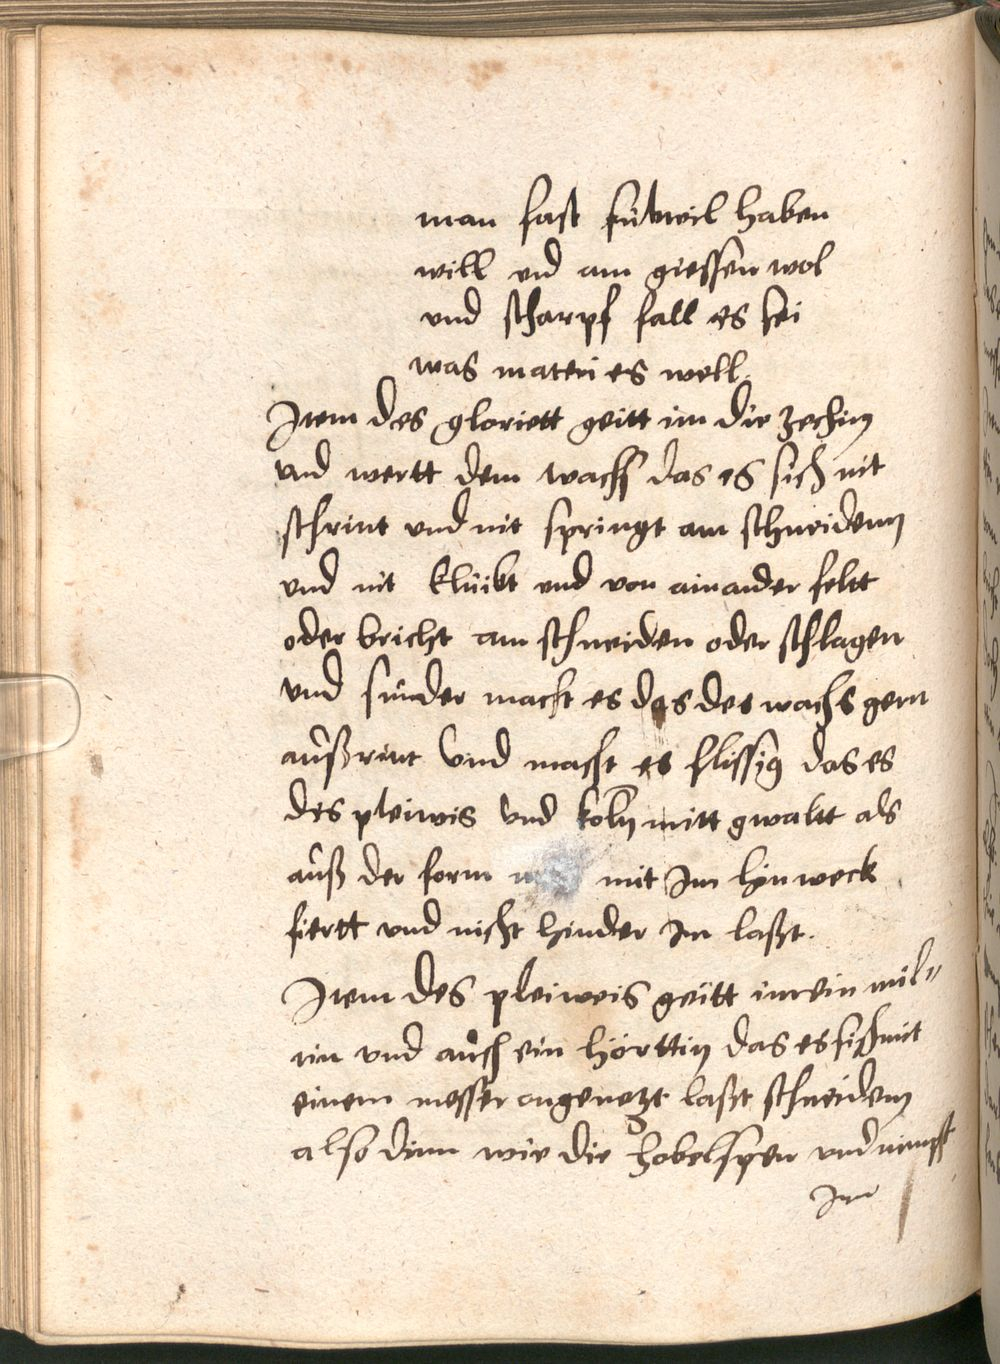 man fast subteil haben
will vnd am giessen wol
vnd scharpf fall es sei
was materi es well.
Item des gloriett geitt im die zechin
vnd wertt dem wachs das es sich nit
schrint vnd nit springt am schneidenn
vnd nit klúibt vnd von ainander feltt
oder bricht am schneiden oder schlagen
vnd sunder macht es das des wachs gern
außrint vnd macht es flissig das es
des pleiwis vnd koln mitt gwaltt als
auß der form mit Im hin weck
fiertt vnd nicht hinder Im laßt.
Item des pleiweis geitt im ein mil⸗
rin vnd auch ein hörttin das es sich mit
einem messer angenetzt laßt schneiden
also dinn wie die hobelspen vnd nimpt
Im